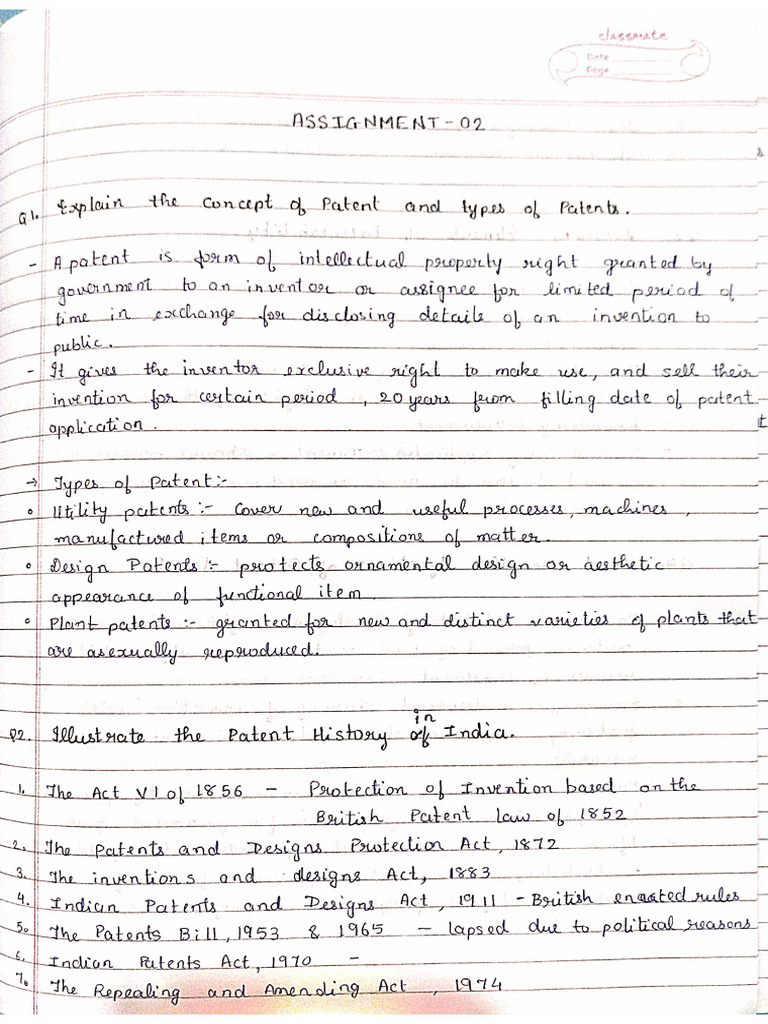 classmate
Date
Page
ASSIGNMENT-02
Q1. Explain the concept of Patent and types of Patents.
- A patent is form of intellectual property right granted by
government to an inventor or assignee for limited period of
time in exchange for disclosing details of an invention to
public.
- It gives the inventor exclusive right to make use, and sell their
invention for certain period, 20 years from filling date of patent
application.
→ Types of Patent:-
• Utility patents :- Cover new and useful processes, machines,
manufactured items or compositions of matter.
• Design Patents :- protects ornamental design or aesthetic
appearance of functional item.
• Plant patents :- granted for new and distinct varieties of plants that
are asexually reproduced.
Q2. Illustrate the Patent History in India.
1. The Act VI of 1856 - Protection of Invention based on the
British Patent law of 1852
2. The Patents and Designs Protection Act, 1872
3. The inventions and designs Act, 1883
4. Indian Patents and Designs Act, 1911 - British enacted rules
5. The Patents Bill, 1953 & 1965 - lapsed due to political reasons
6. Indian Patents Act, 1970 -
7. The Repealing and Amending Act, 1974